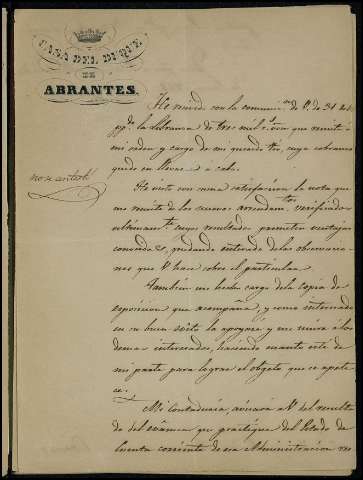 CASA DEL DUQUE
DE
ABRANTES.
He recibido con la comunicon de V. de 31 del
pp.do la Libranza de tres mil rs. von que remite á
mi orden y cargo de mi querido tio, cuya cobranza
quedo en llevar á cabo.
He visto con suma satisfaccion la nota que
me remite de los nuevos arrendamtos verificados
ultimamte cuyos resultados prometen ventajas
conocidas, quedando enterado de las observacio-
nes que V. hace sobre el particular.
Tambien me hecho cargo de la copia de
esposicion que acompaña, y como interesado
en su buen éxito la apoyare y me unire á los
demas interesados, haciendo cuanto este de
mi parte para lograr el objeto que se apete-
ce.
Mi Contaduria, avisará á V. del resulta-
do del exámen que practique del Estado de
Cuenta corriente de esa Administracion res